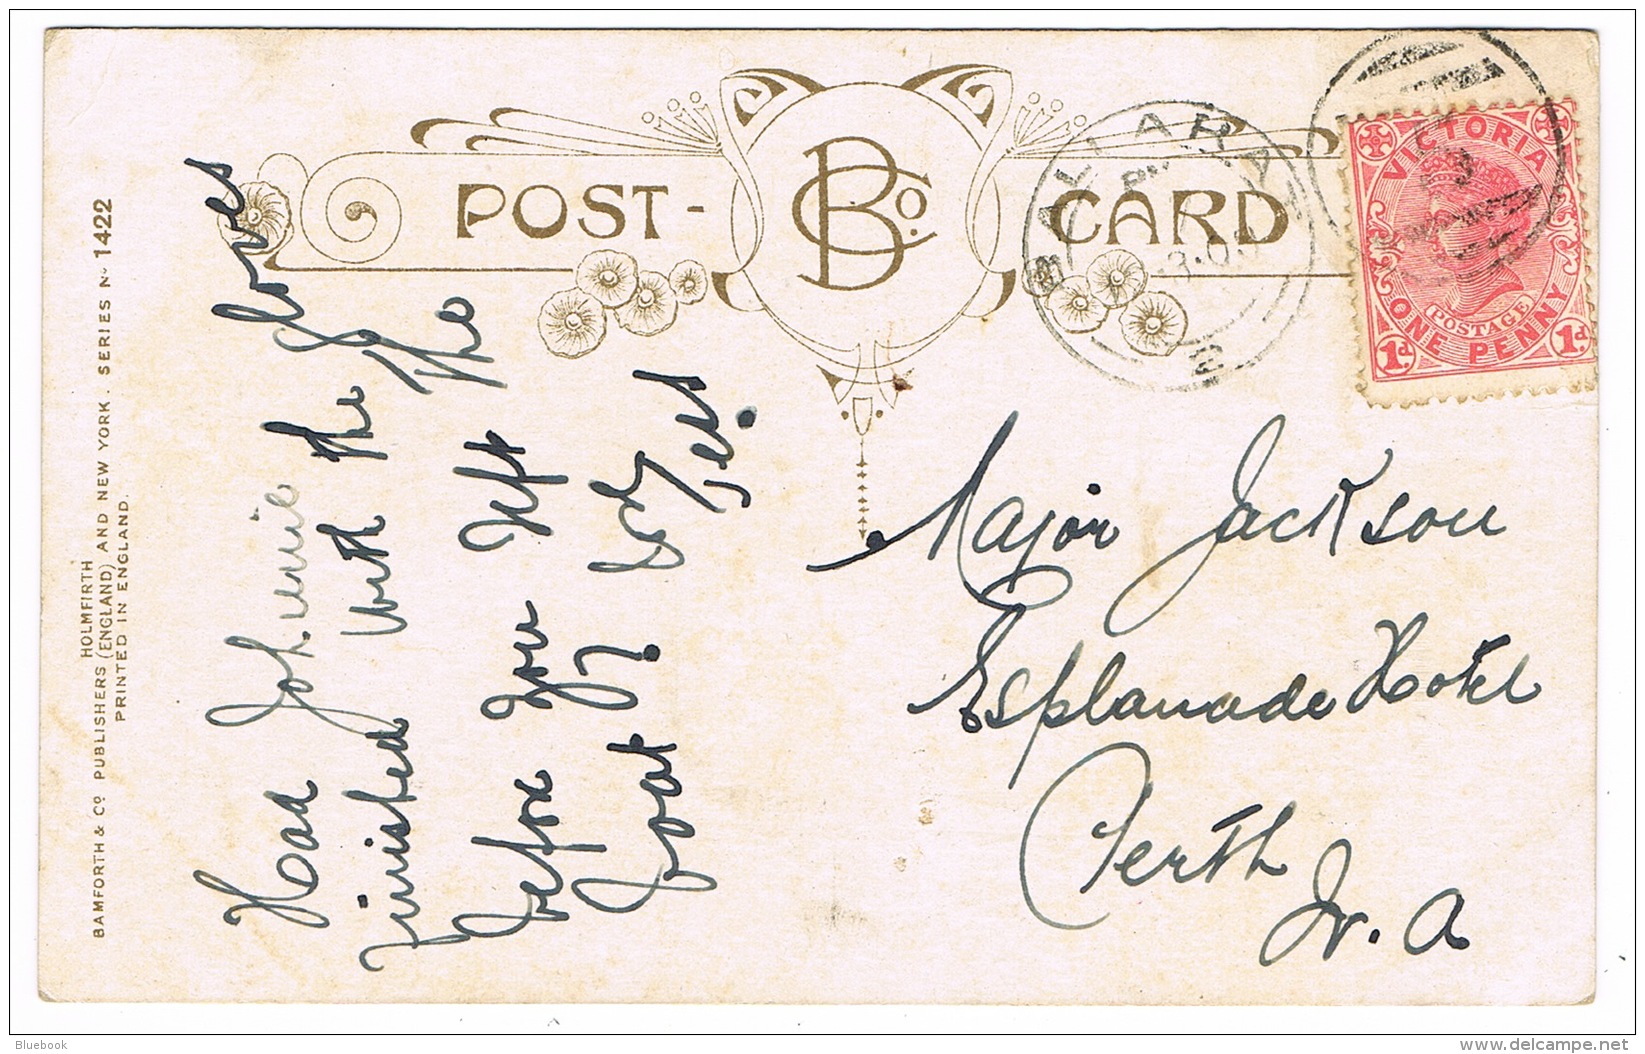 POST - CARD
B & Co.
BALLARAT
VICTORIA
POSTAGE
ONE PENNY
1d. 1d.
BAMFORTH & Co PUBLISHERS (ENGLAND) AND NEW YORK. SERIES No 1422
HOLMFIRTH
PRINTED IN ENGLAND.
Had Johnnie
finished with the gloves
before you left the
Boat
Tess.
Major Jackson
Esplanade Hotel
Perth
W. A
Bluebook
delcampe.net